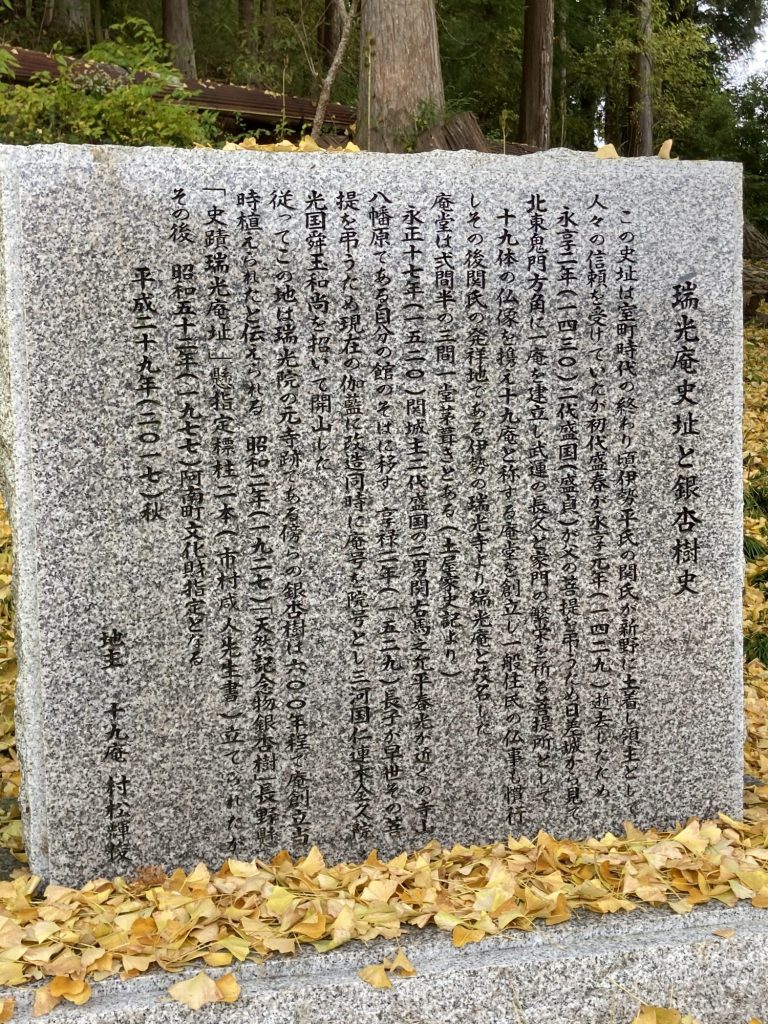 瑞光庵史址と銀杏樹史
この史址は室町時代の終わり頃伊勢平氏の関氏が新野に土着し領主として
人々の信頼を受けていたが初代盛春が永享元年(一四二九)逝去したため
永享二年(一四三〇)二代盛国(盛貞)が父の菩提を弔うため日差城から見て
北東鬼門方角に一庵を建立し武運の長久と家門の繁栄を祈る菩提所として
十九体の仏像を携え十九庵と称する庵堂を創立し一般住民の仏事も慣行
しその後関氏の発祥地である伊勢の瑞光寺より瑞光庵と改名した
庵堂は弍間半の三間一堂茅葺きとある(土屋家史記より)
永正十七年(一五二〇)関城主二代盛国の二男関右馬之允平春光が近くの寺山
八幡原である自分の館のそばに移す 享禄二年(一五二九)長子が早世その菩
提を弔うため現在の伽藍に改造同時に庵号を院号とし三河国仁連木全久院
光国舜玉和尚を招いて開山した
従ってこの地は瑞光院の元寺跡である傍らの銀杏樹は六〇〇年程で庵創立当
時植えられたと伝えられる 昭和二年(一九二七)「天然記念物銀杏樹」長野縣
「史蹟瑞光庵址」縣指定標柱二本(市村咸人先生書)立てられたが
その後 昭和五十二年(一九七七)阿南町文化財指定となる
平成二十九年(二〇一七)秋
地主 十九庵 村松輝